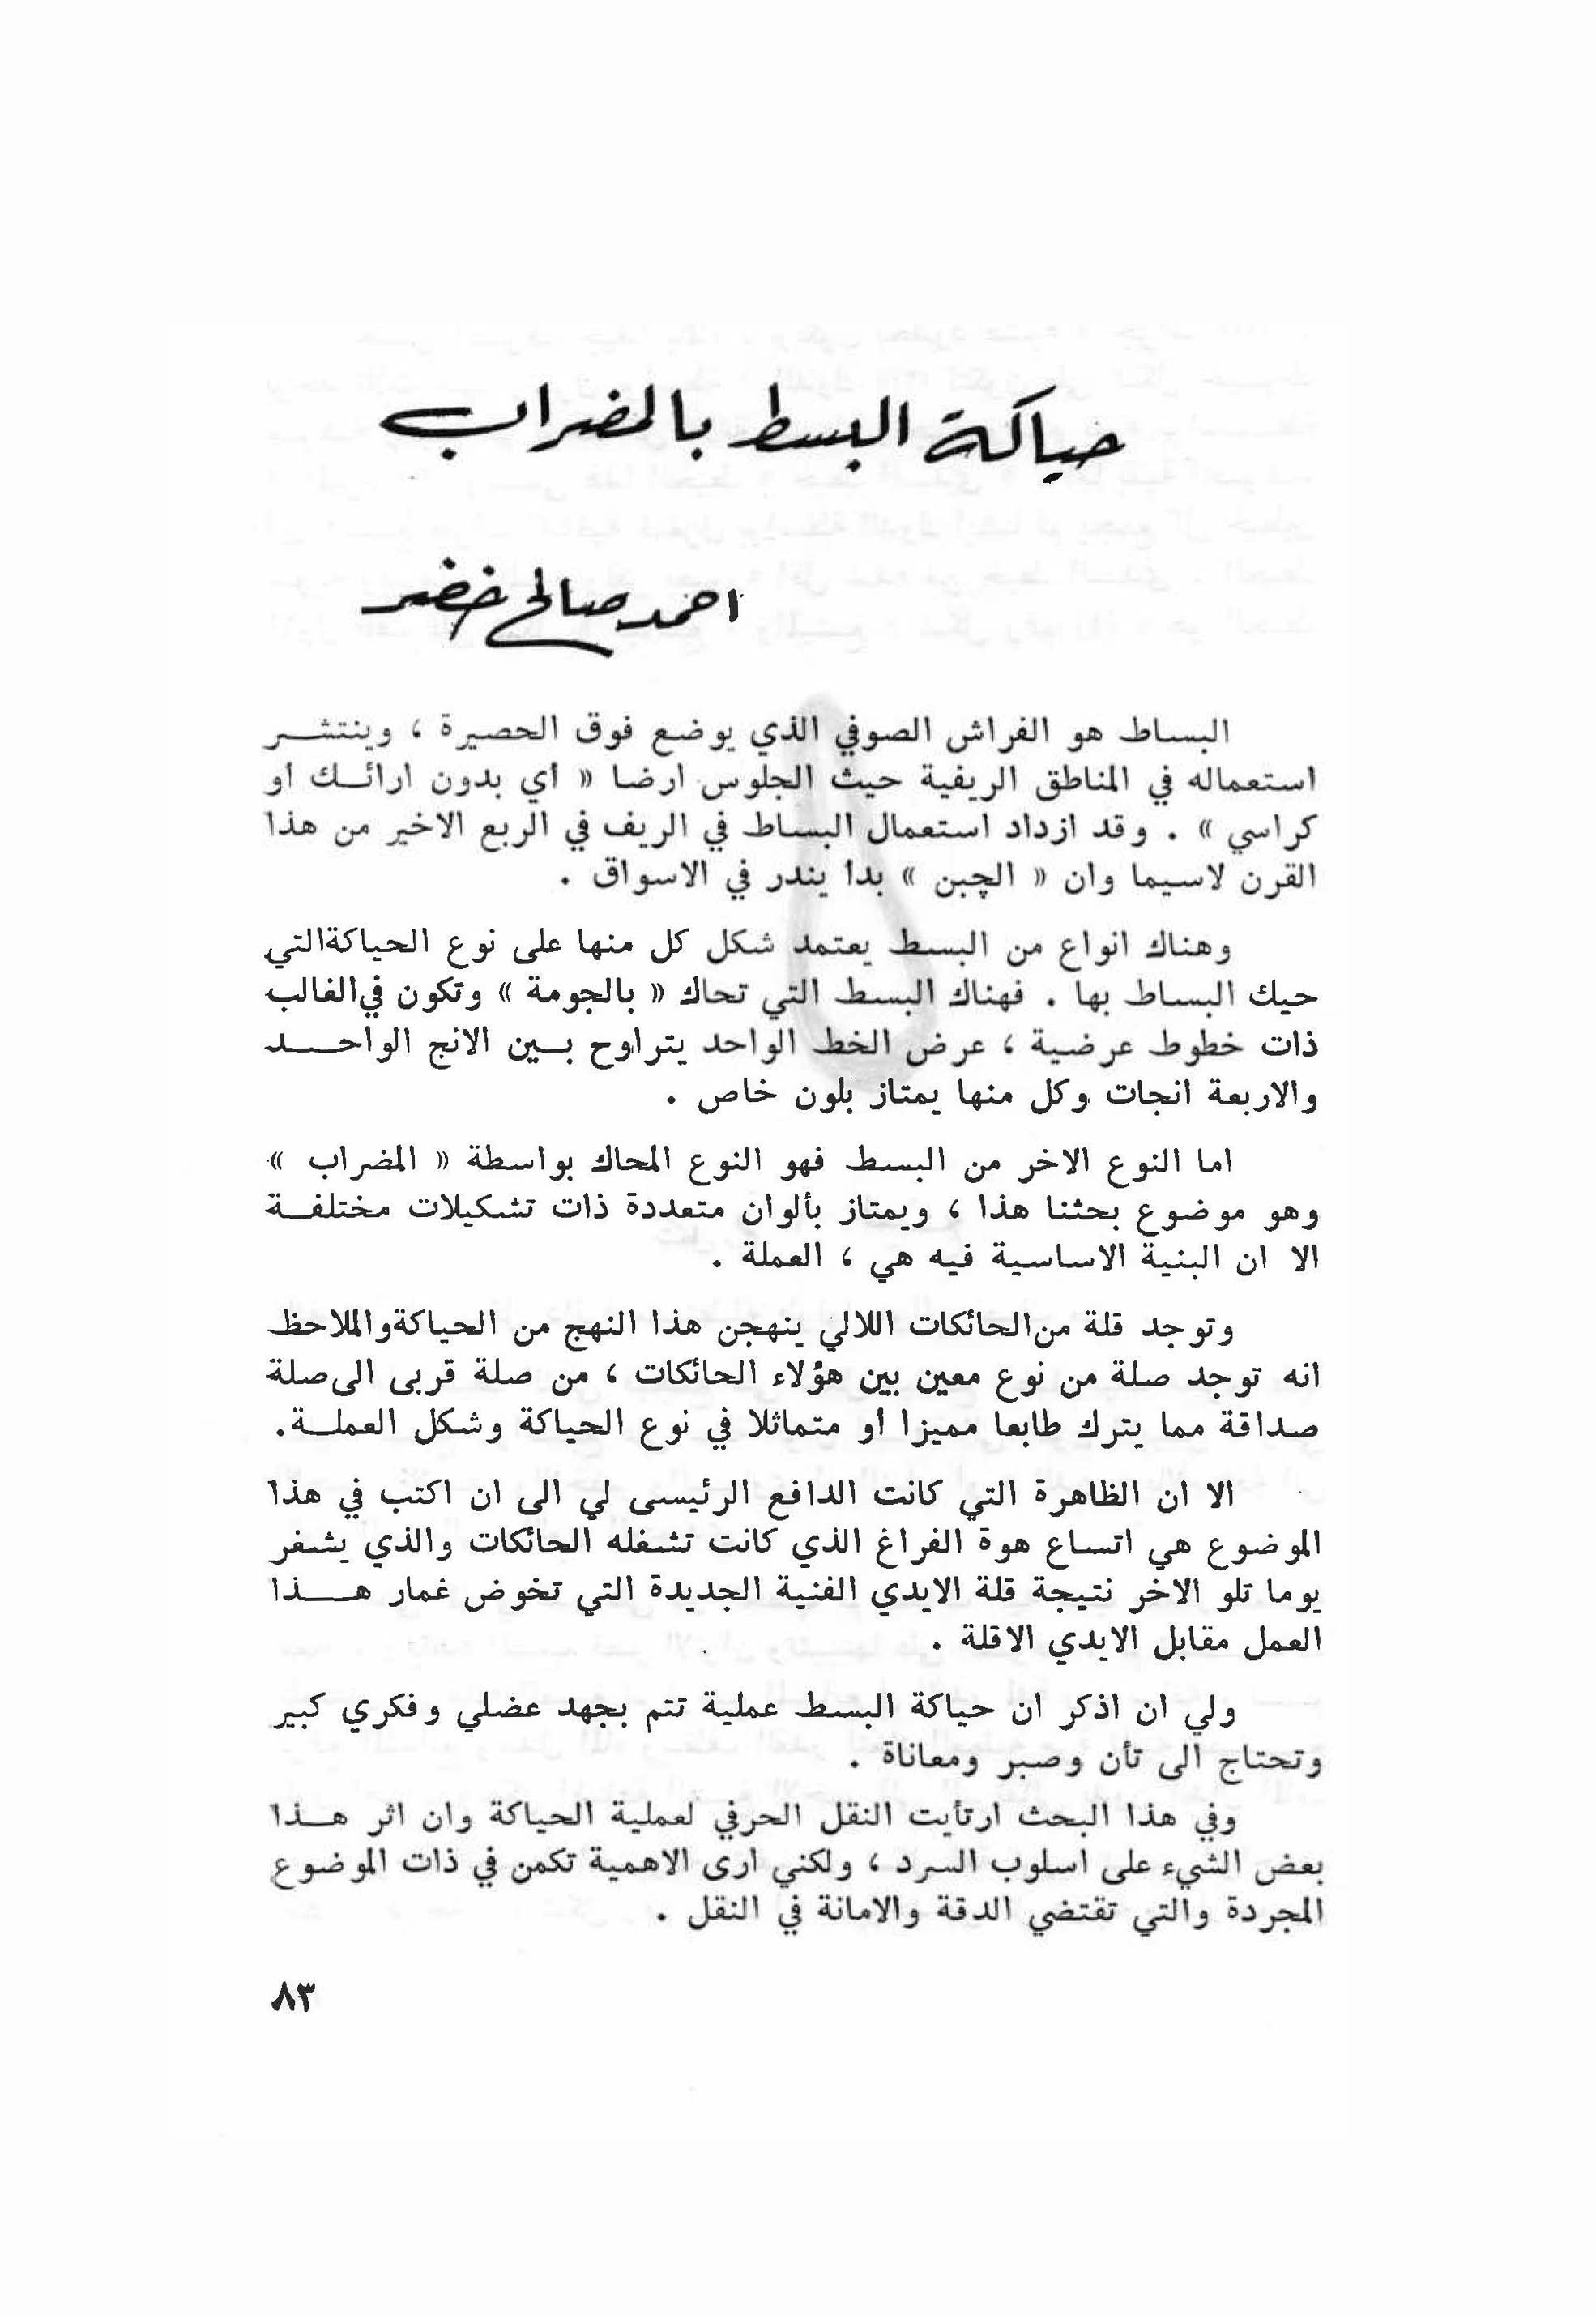 حياكة البسط بالمضراب
احمد صالح خضر
البساط هو الفراش الصوفي الذي يوضع فوق الحصيرة ، وينتشر
استعماله في المناطق الريفية حيث الجلوس ارضا « أي بدون ارائك او
كراسي » . وقد ازداد استعمال البساط في الريف في الربع الاخير من هذا
القرن لاسيما وان « الچبن » بدأ يندر في الاسواق .
وهناك انواع من البسط يعتمد شكل كل منها على نوع الحياكة التي
حيك البساط بها . فهناك البسط التي تحاك « بالجومة » وتكون في الغالب
ذات خطوط عرضية ، عرض الخط الواحد يتراوح بين الانج الواحد
والاربعة انجات وكل منها يمتاز بلون خاص .
اما النوع الاخر من البسط فهو النوع المحاك بواسطة « المضراب »
وهو موضوع بحثنا هذا ، ويمتاز بألوان متعددة ذات تشكيلات مختلفة
الا ان البنية الاساسية فيه هي ، العملة .
وتوجد قلة من الحائكات اللالي ينهجن هذا النهج من الحياكة والملاحظ
انه توجد صلة من نوع معين بين هؤلاء الحائكات ، من صلة قربى الى صلة
صداقة مما يترك طابعا مميزا أو متماثلا في نوع الحياكة وشكل العملة .
الا ان الظاهرة التي كانت الدافع الرئيسى لي الى ان اكتب في هذا
الموضوع هي اتساع هوة الفراغ الذي كانت تشغله الحائكات والذي يشغر
يوما تلو الاخر نتيجة قلة الايدي الفنية الجديدة التي تخوض غمار هذا
العمل مقابل الايدي الاقلة .
ولي ان اذكر ان حياكة البسط عملية تتم بجهد عضلي وفكري كبير
وتحتاج الى تأن وصبر ومعاناة .
وفي هذا البحث ارتأيت النقل الحرفي لعملية الحياكة وان اثر هذا
بعض الشيء على اسلوب السرد ، ولكني ارى الاهمية تكمن في ذات الموضوع
المجردة والتي تقتضي الدقة والامانة في النقل .
٨٣